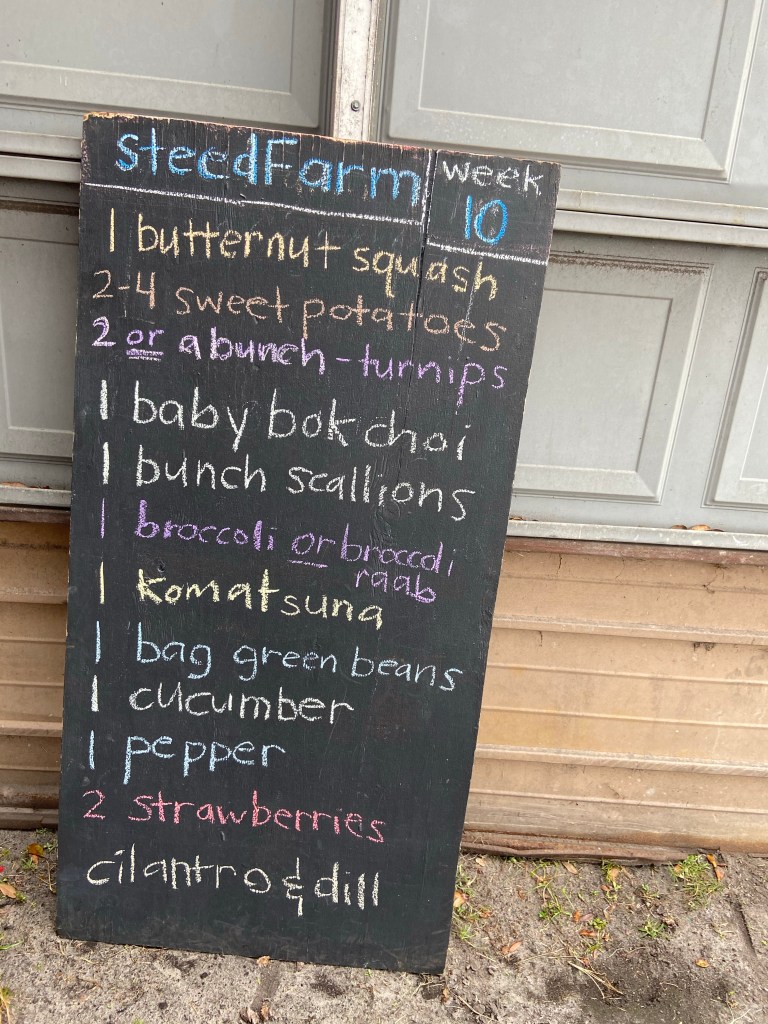 steedFarm
week
10
1 butternut squash
2-4 sweet potatoes
2 or a bunch - turnips
1 baby bok choi
1 bunch scallions
1 broccoli or broccoli
raab
1 komatsuna
1 bag green beans
1 cucumber
1 pepper
2 strawberries
cilantro & dill